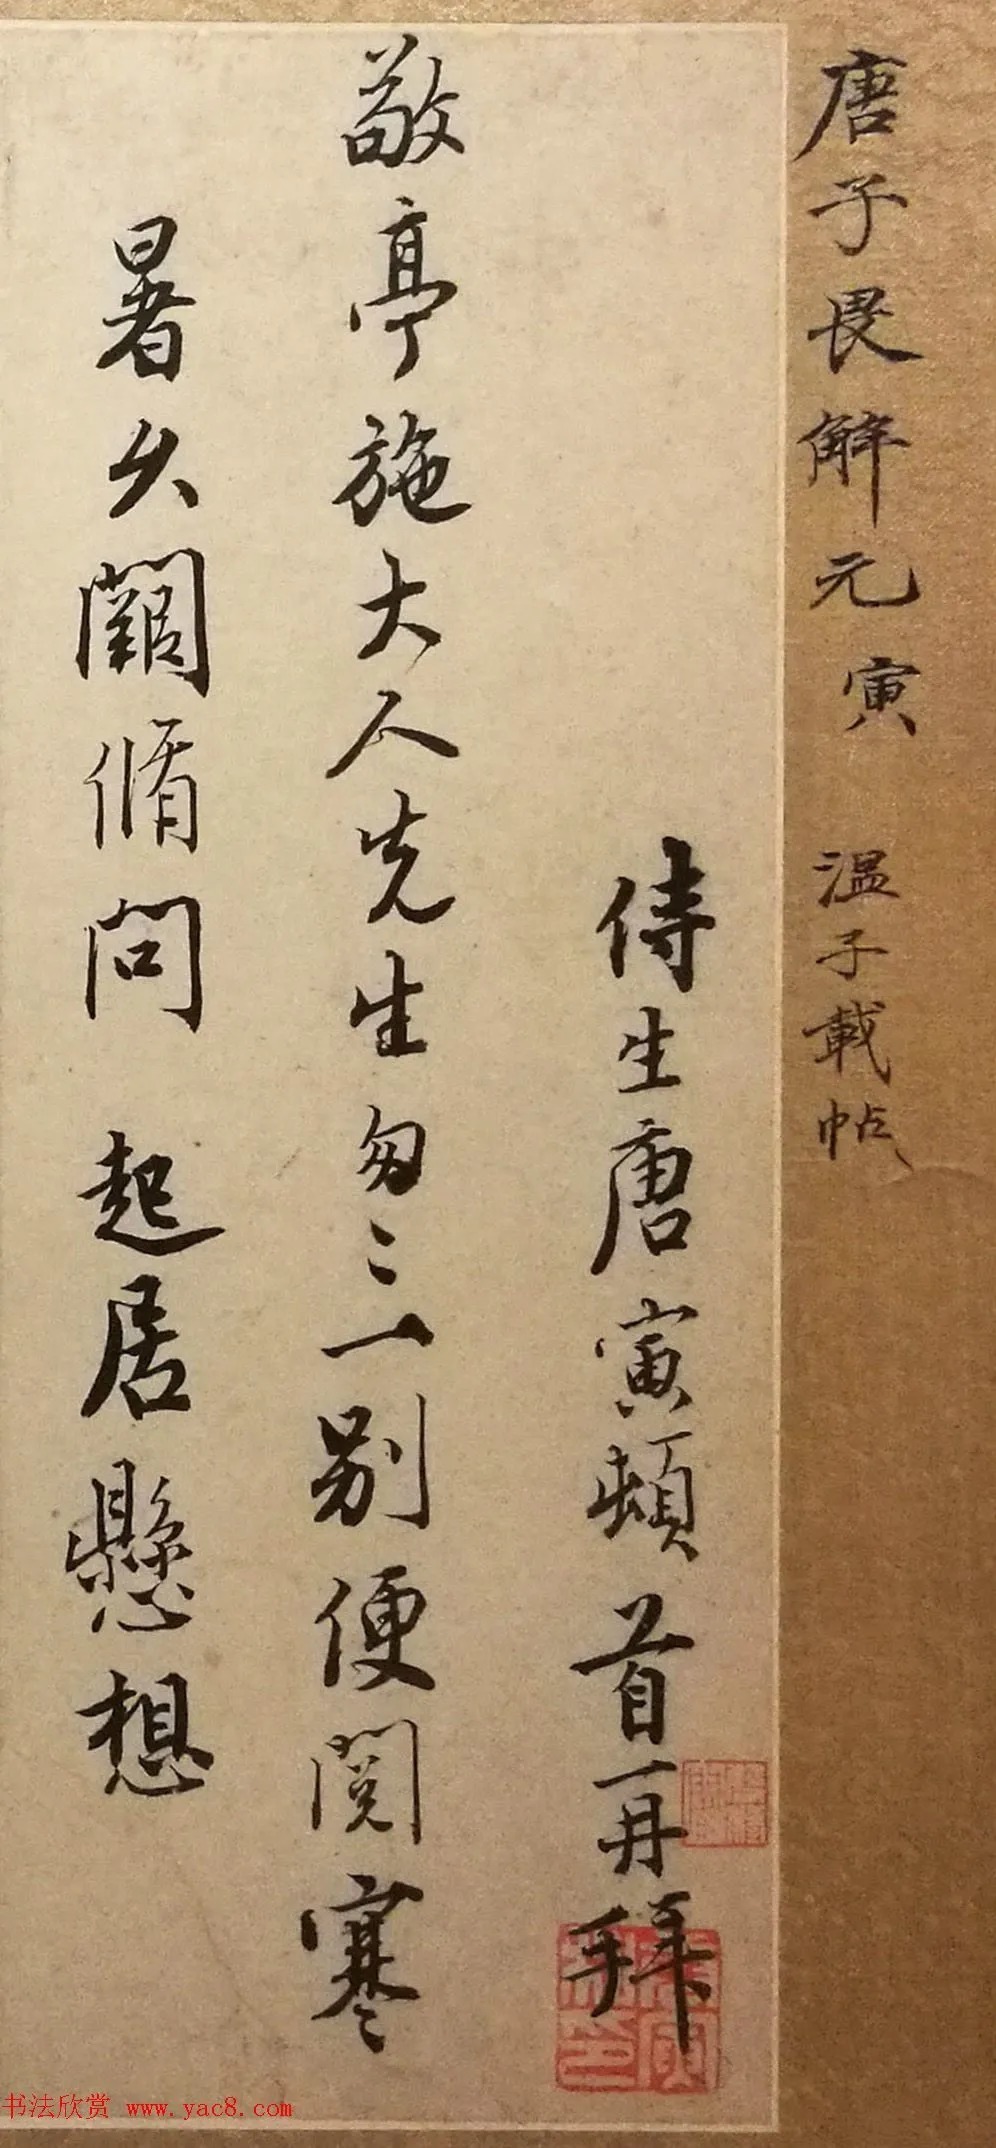 唐子畏解元寅 溫子載帖
侍生唐寅頓首再拜
敬亭施大人先生匆〻一別便閱寒
暑久闊脩問 起居懸想
书法欣赏 www.yac8.com